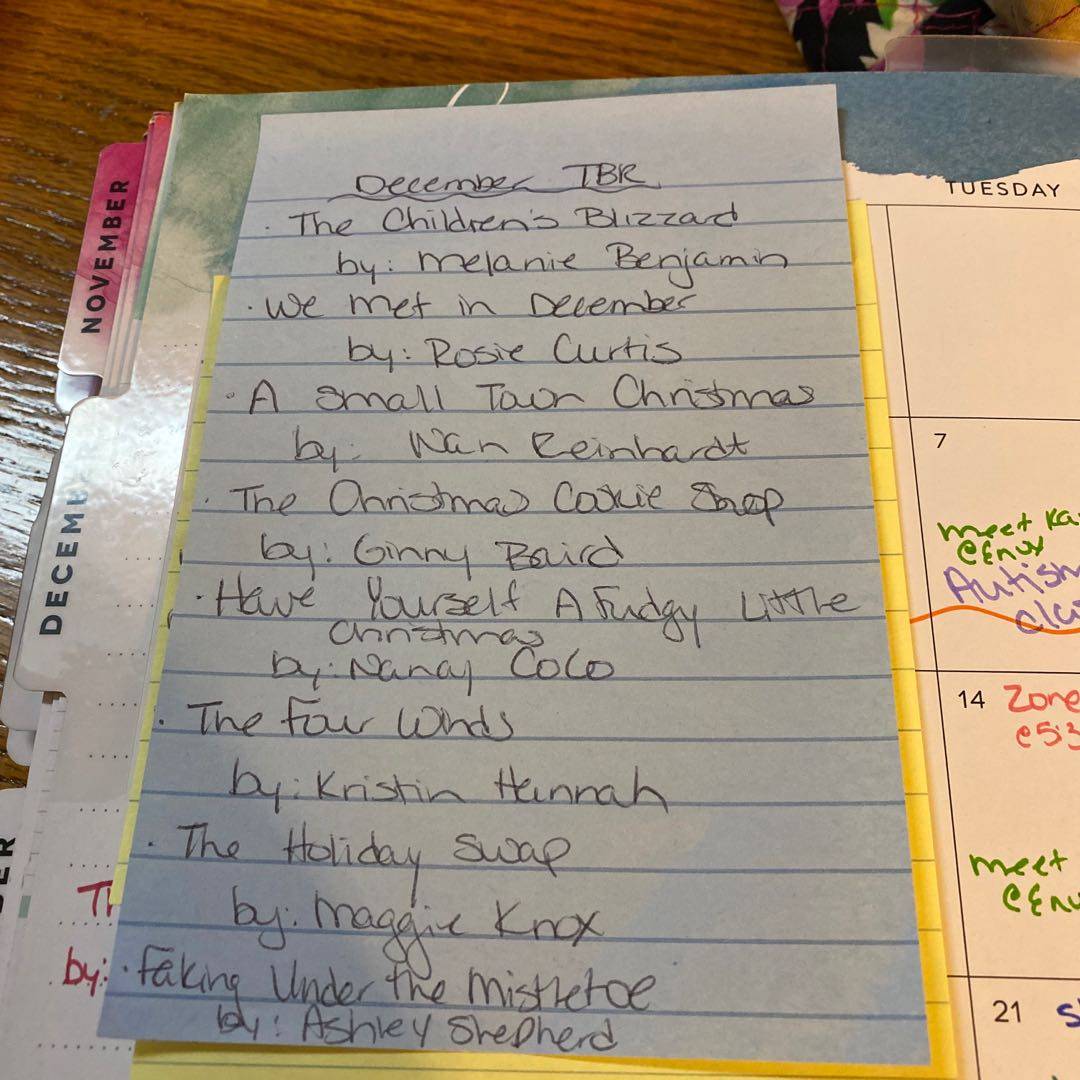 December TBR
· The Children's Blizzard
by: Melanie Benjamin
· We met in December
by: Rosie Curtis
· A Small Town Christmas
by: Nan Reinhardt
· The Christmas Cookie Shop
by: Ginny Baird
· Have Yourself A Fudgy Little
Christmas
by: Nancy CoCo
· The Four Winds
by: Kristin Hannah
· The Holiday Swap
by: Maggie Knox
· Faking Under the Mistletoe
by: Ashley Shepherd
NOVEMBER
DECEMB
by:
TUESDAY
7
meet
Autism
14 Zone
meet
21